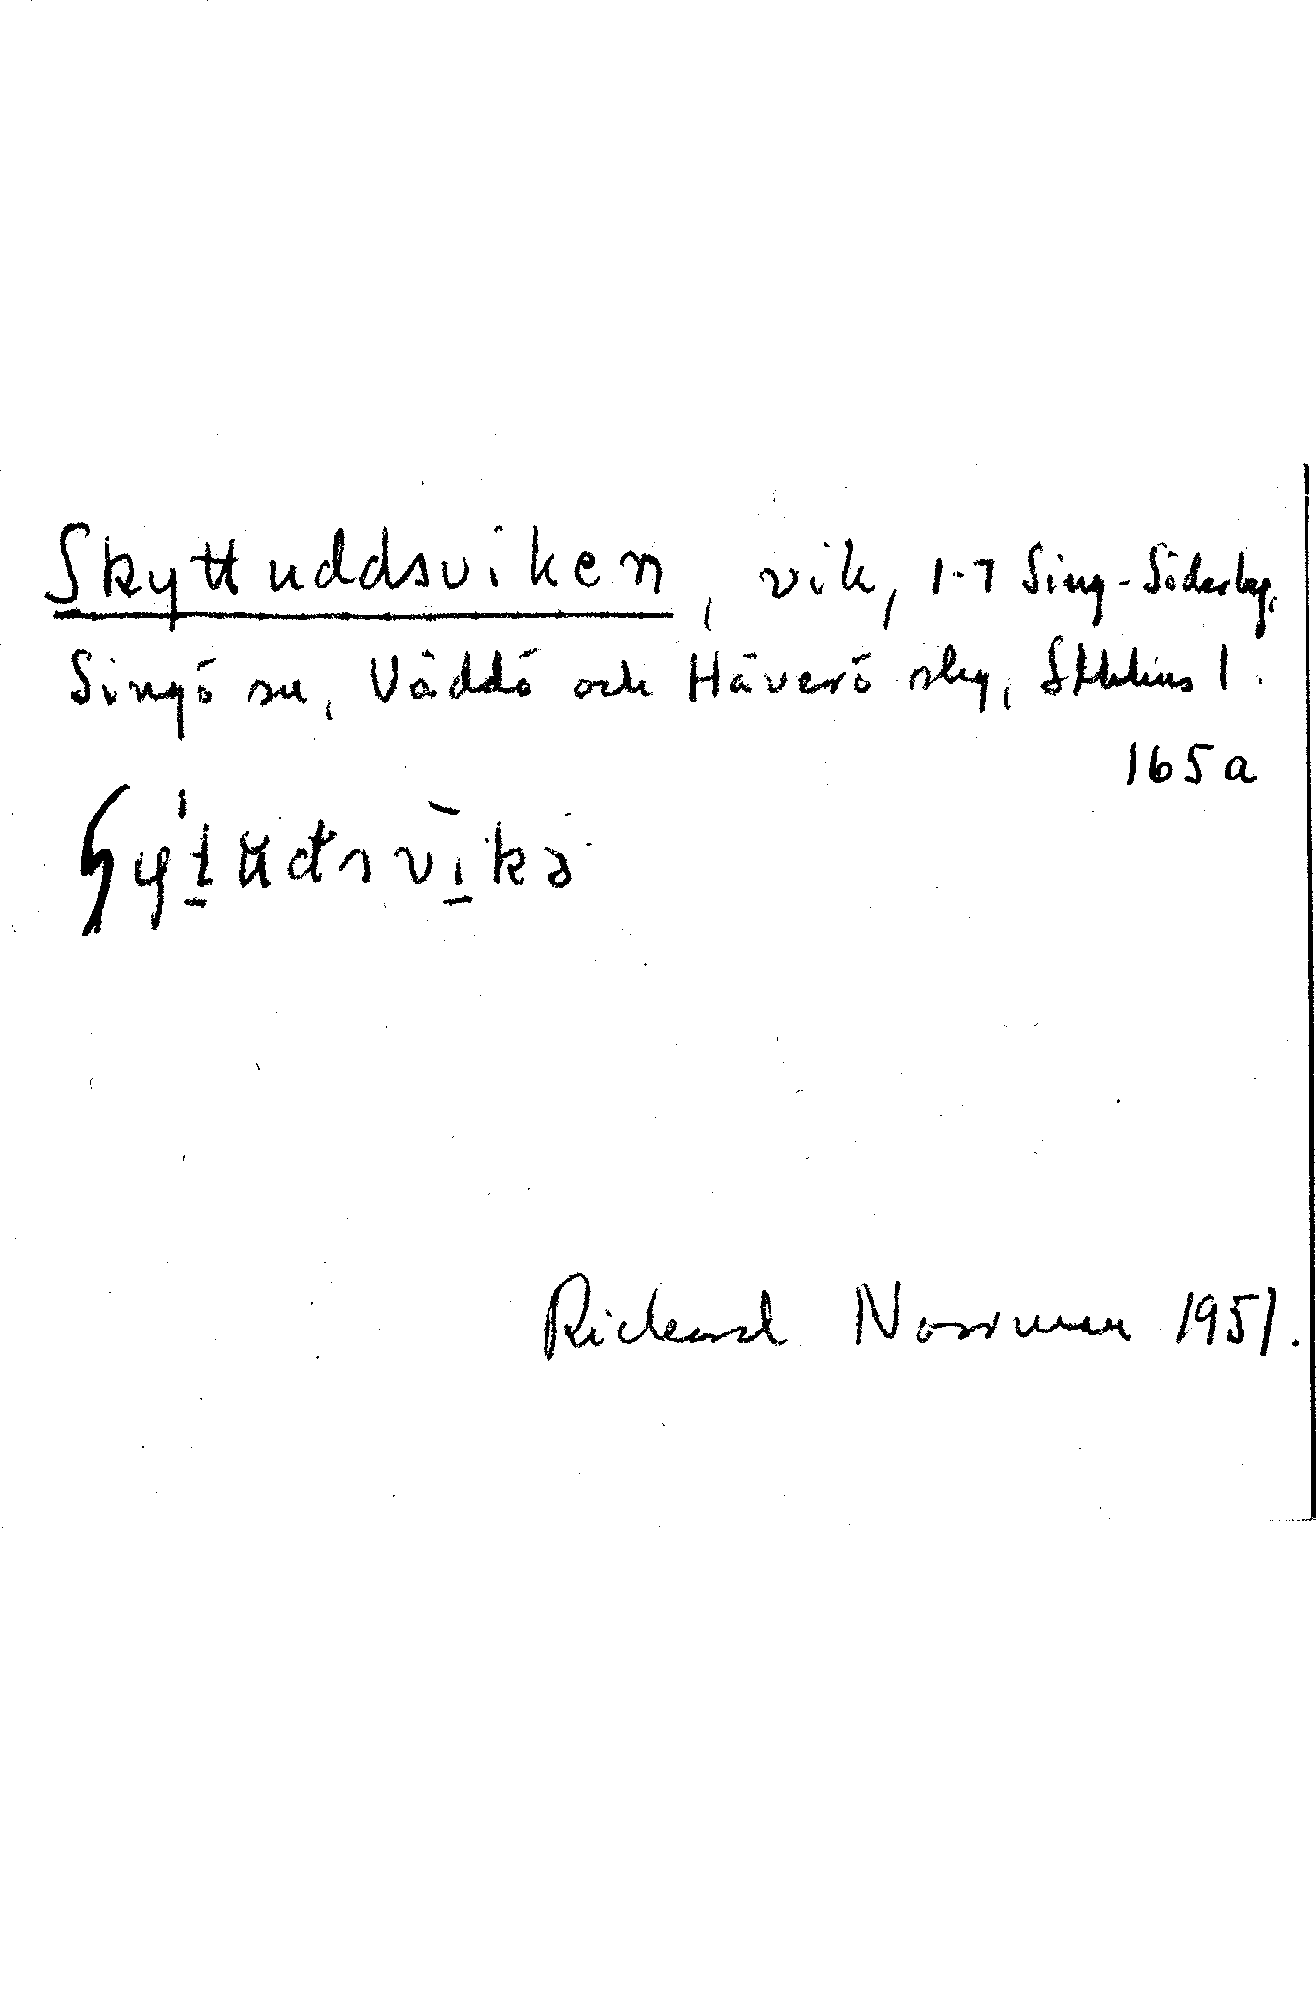 Skyttuddsviken, vik, 1-7 Sing-Söderby,
Singö sn, Väddö och Häverö slg, Sthlms l.
165a
Rickard Norrman 1951.